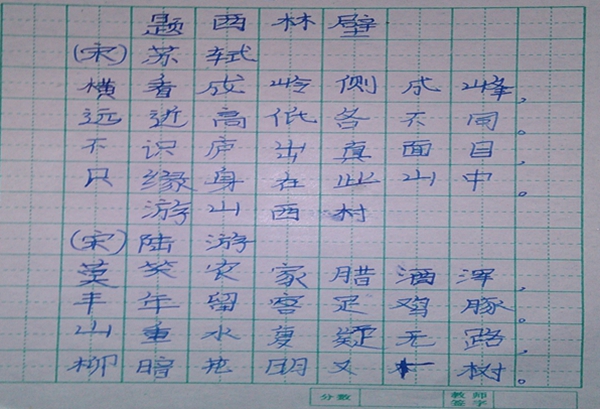 题西林壁
(宋)苏轼
横看成岭侧成峰,
远近高低各不同。
不识庐山真面目,
只缘身在此山中。
游山西村
(宋)陆游
莫笑农家腊酒浑,
丰年留客足鸡豚。
山重水复疑无路,
柳暗花明又一树。
分数 教师签字